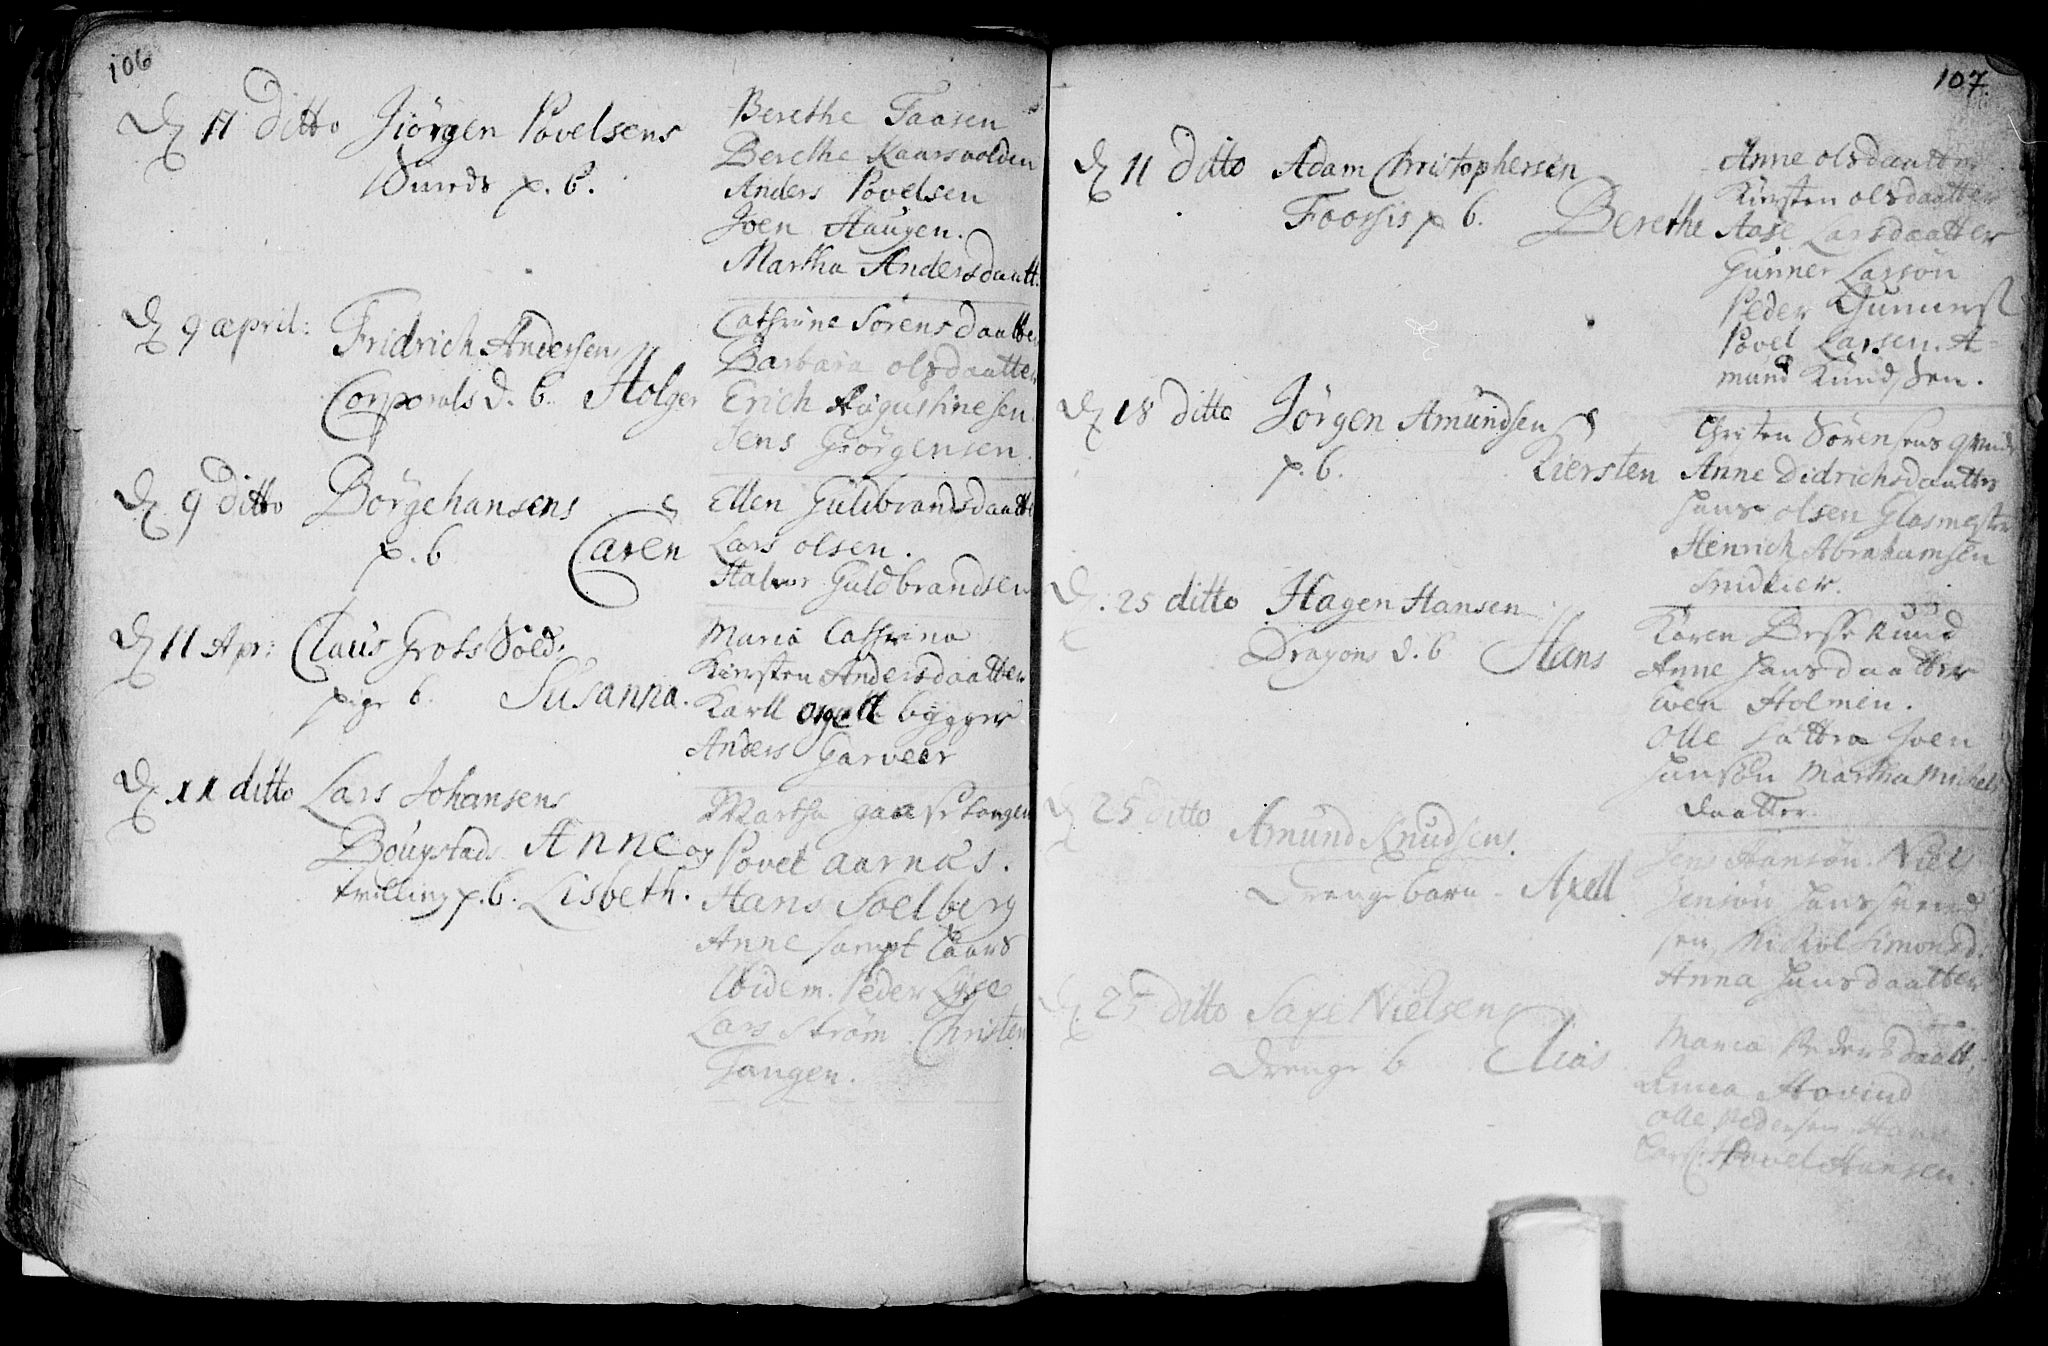 106
D 11 ditto Jiörgen Povelsens
Sunds p. b.
Berethe Faasen
Berethe Kaarsvolden
Anders Povelsen
Joen Haugen.
Martha Andersdaatt.
D 9 april: Fridrich Andersens
Corporals d. b. Holger
Cathrine Sörensdaatter
Barbara olsdaatter
Erich Augustinesen.
Jens Giörgensen.
D 9 ditto Börge hansens
p. b Caren
Ellen Guldbrandsdaatte
Lars olsen.
Halvor Guldbrandsen
D 11 Apr: Claus Grots Sold.
pige b. Susanna.
Maria Cathrina
Kiersten Andersdaatter
Karll orgell bygger
Anders Garveer
D 11 ditto Lars Johansens
Bougstads Anne og
tvilling p. b. Lisbeth.
Martha gaasetangen
Povel aarnæs.
Hans Soelberg
Anne sampt Caars
Ibidem. Peder Lyse
Lars Ström. Christen
Tangen.
107.
D 11 ditto Adam Christophersen
Foossis p b. Berethe
Anne olsdaatter
Kiersten olsdaatter
Aase Larsdaatter
Gunner Larsön
Peder Gunners
Povel Larsen. A-
mund Kundsen.
D 18 ditto Jörgen Amundsen
p. b. Kiersten
Christen Sörensens qvinde
Anne Didrichsdaatter
Hans olsen Glasmester
Henrich Abrahamsen
Snidkier.
D. 25 ditto Hagen Hansen
Dragons d. b Hans
Karen Besserud
Anne Hansdaatter
Even Holmen.
Olle Sättra Joen
Hansön Martha Michels
daatter.
D 25 ditto Amund Knudsens.
Drenge barn - Axell
Jens Hansön. Niels
Jensön Hans
sen, Simonsd.
Anna Hansdaatter
D. 25 ditto Saxe Nielsens
Drenge b Elias
Maria Pedersdaatt.
Anna Hovind
Olle Pedersen Hans
Povel Hansen.